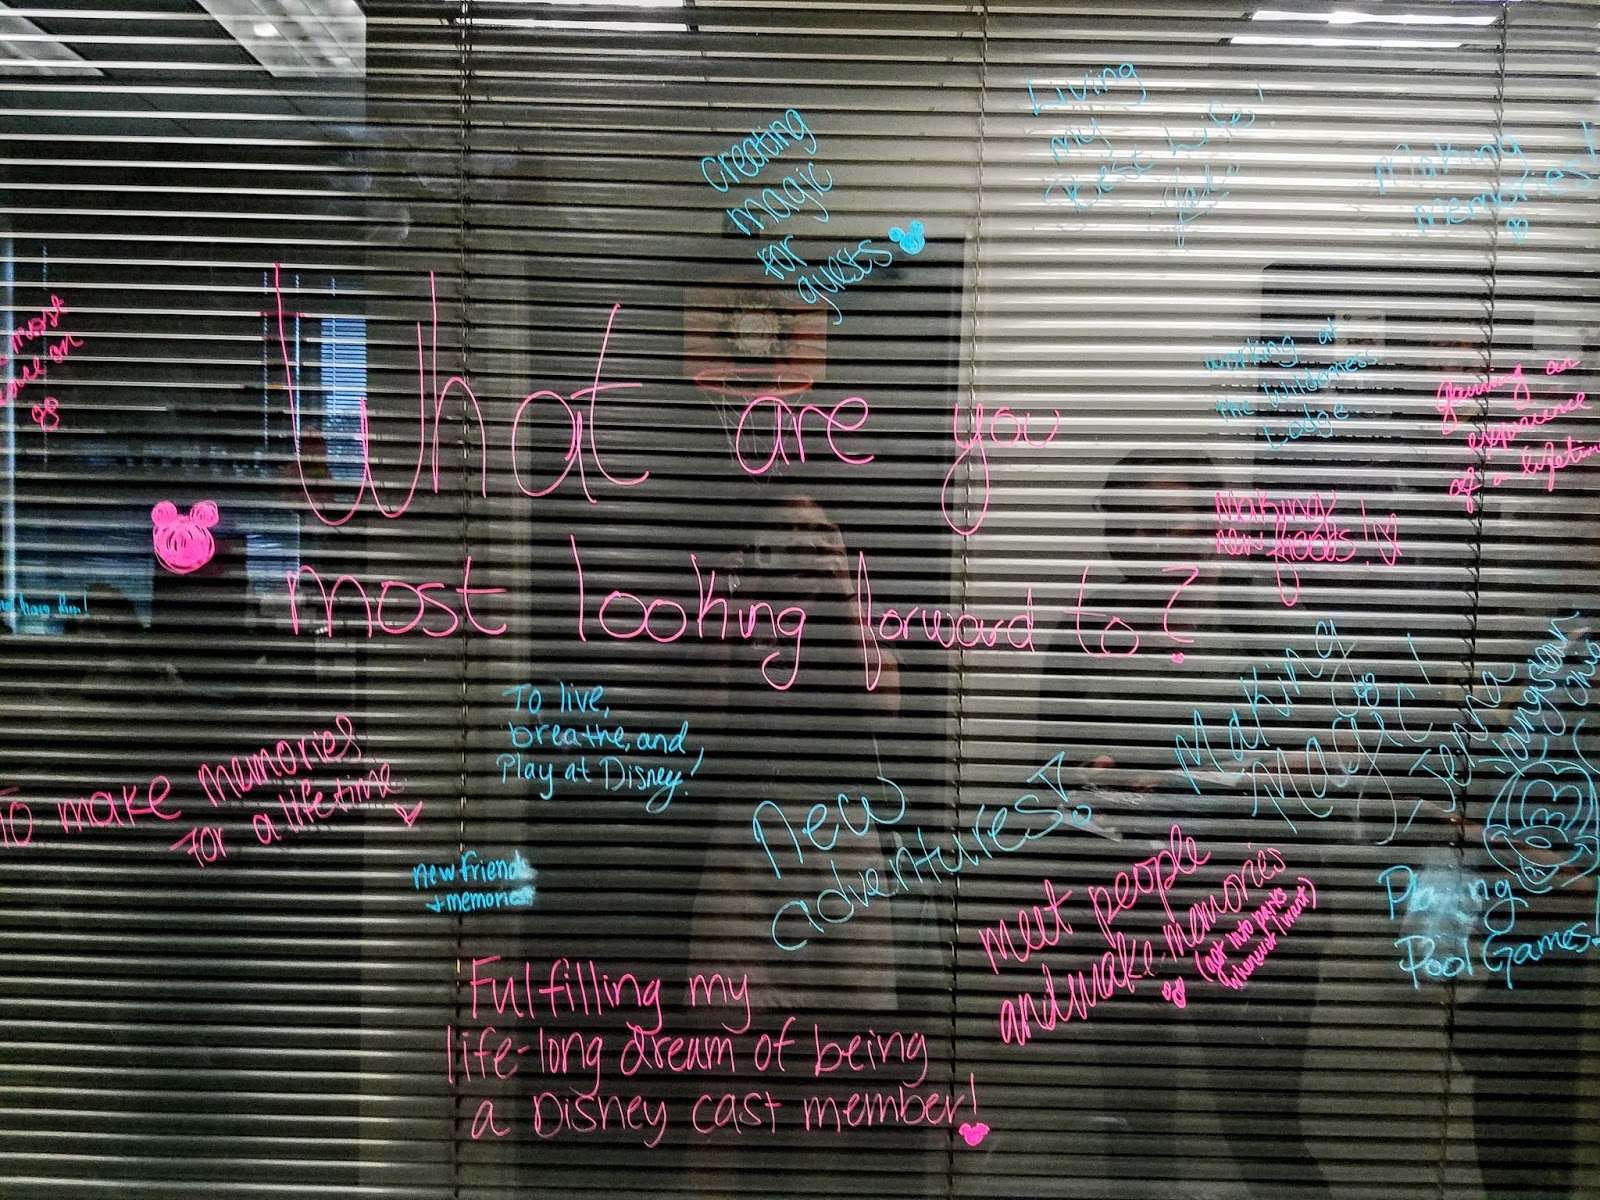 What are you
most looking forward to?
creating
magic
for
guests
Living
my
Best Life!
Making
memories!
working at
the Wilderness
Lodge
gaining an
experience
of a lifetime
making
new friends!
most
on
have fun!
To make memories
for a lifetime
To live,
breathe, and
Play at Disney!
new friends
+ memories
New
adventures!
Making
Magic!
meet people
and make memories
(get into parks
whenever I want)
Playing
Pool Games!
Fulfilling my
life-long dream of being
a Disney cast member!